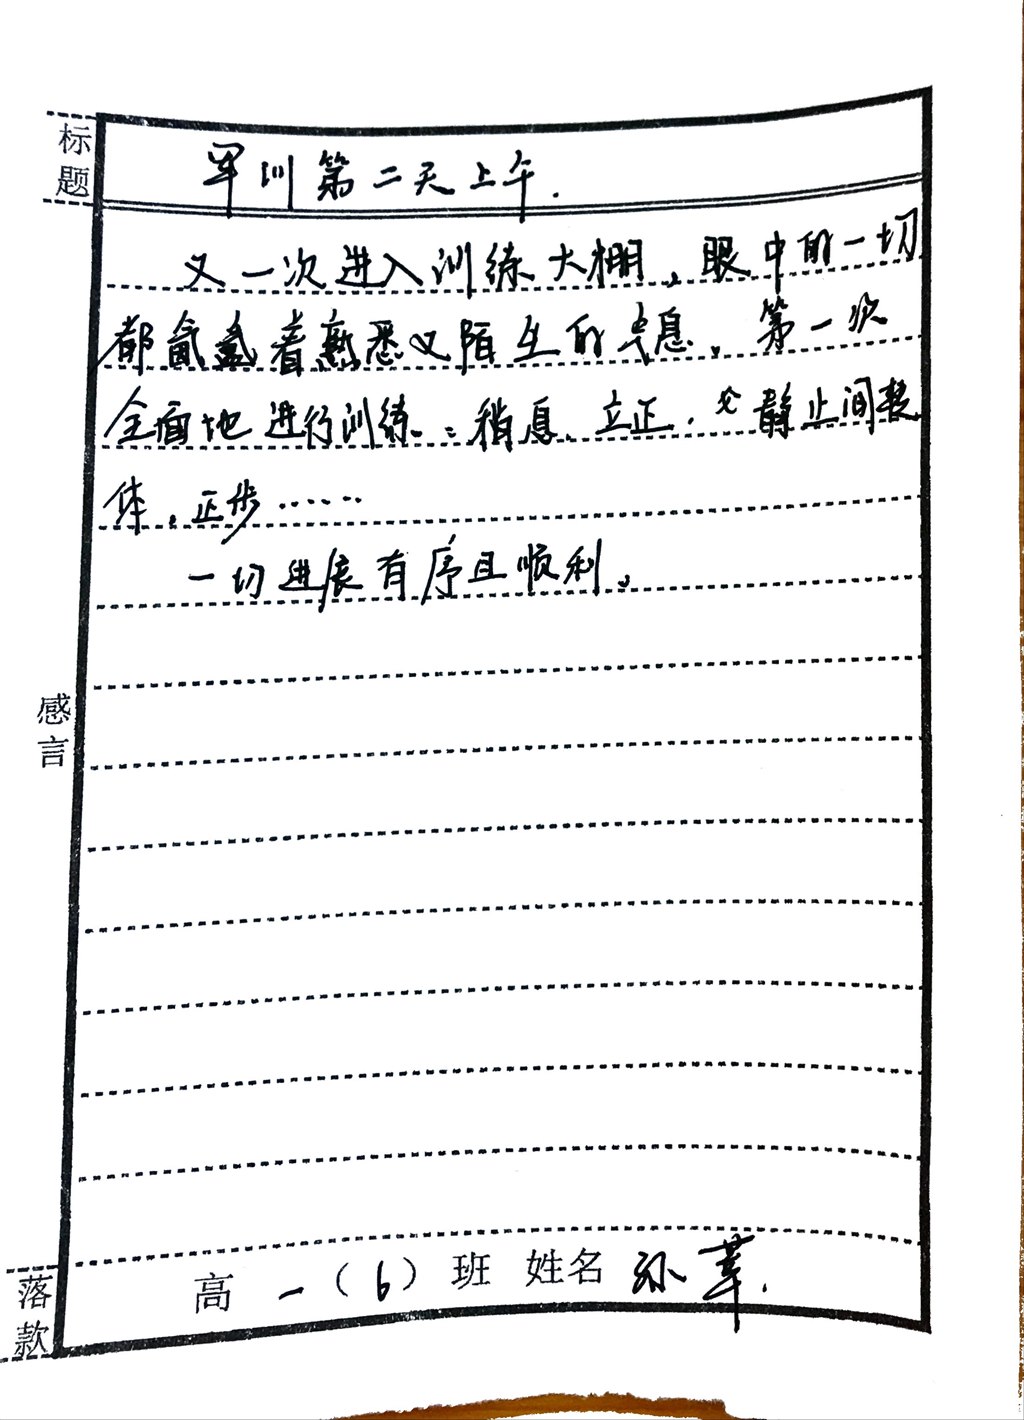 标题
军训第二天上午.
又一次进入训练大棚，眼中的一切
都氤氲着熟悉又陌生的气息。第一次
全面地进行训练：稍息、立正、静止间整
体，正步……
一切进展有序且顺利。
感言
落款
高一（6）班 姓名 孙苹.